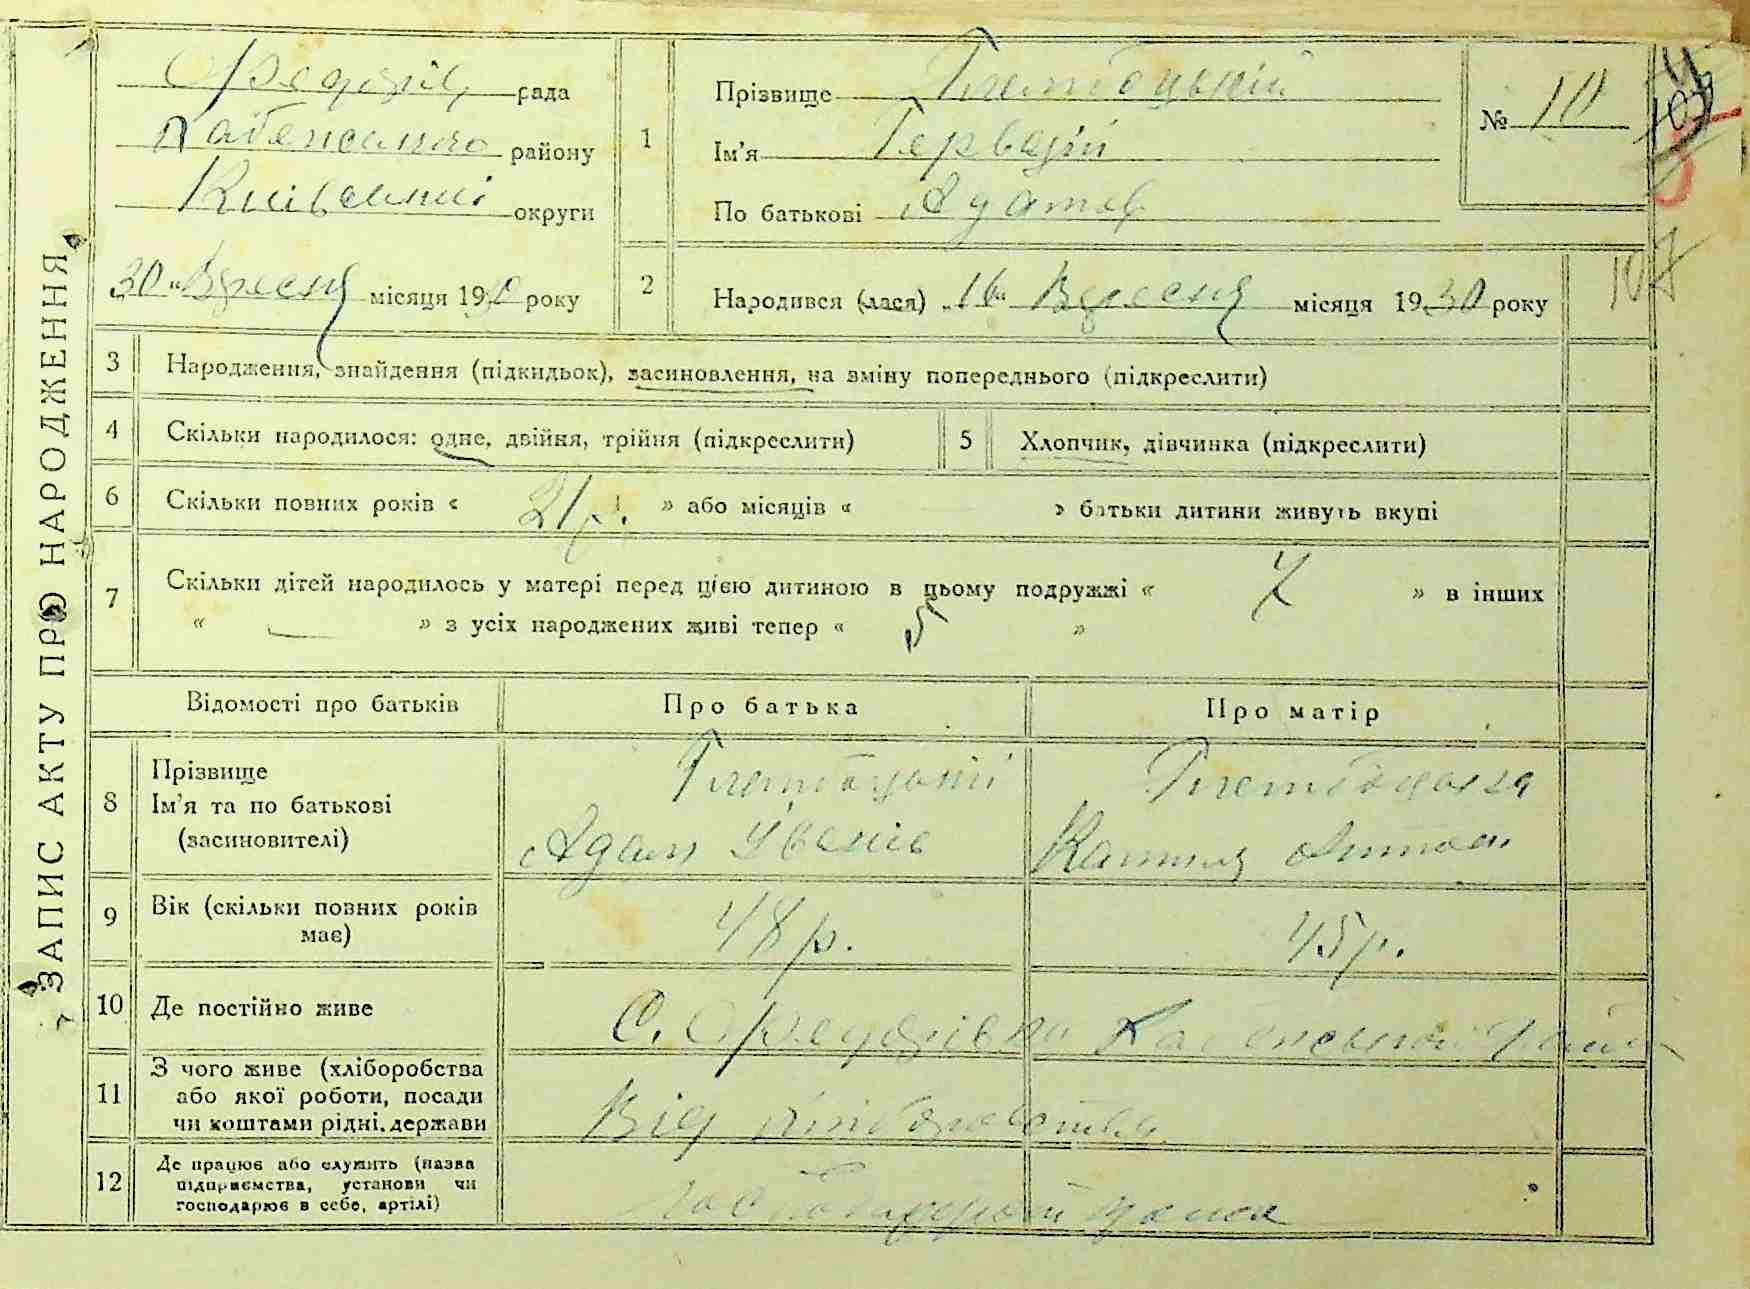 ЗАПИС АКТУ ПРО НАРОДЖЕННЯ
рада
району
округи
„30 „ Вересня місяця 1930 року
1
Прізвище
Ім'я Гервазій
По батькові Адамов
№ 10
2
Народився (лася) „16„ Вересня місяця 1930 року
107
3
Народження, знайдення (підкидьок), засиновлення, на зміну попереднього (підкреслити)
4
Скільки народилося: одне, двійня, трійня (підкреслити)
5
Хлопчик, дівчинка (підкреслити)
6
Скільки повних років « 21 р. » або місяців « » батьки дитини живуть вкупі
7
Скільки дітей народилось у матері перед цією дитиною в цьому подружжі « 7 » в інших
« — » з усіх народжених живі тепер « 5 »
Відомості про батьків
Про батька
Про матір
8
Прізвище
Ім'я та по батькові
(засиновителі)
Адам Іванів
9
Вік (скільки повних років
має)
48 р.
45 р.
10
Де постійно живе
С. Федорівка
11
З чого живе (хліборобства
або якої роботи, посади
чи коштами рідні, держави
Від хліборобства
12
Де працює або служить (назва
підприємства, установи чи
господарює в себе, артілі)